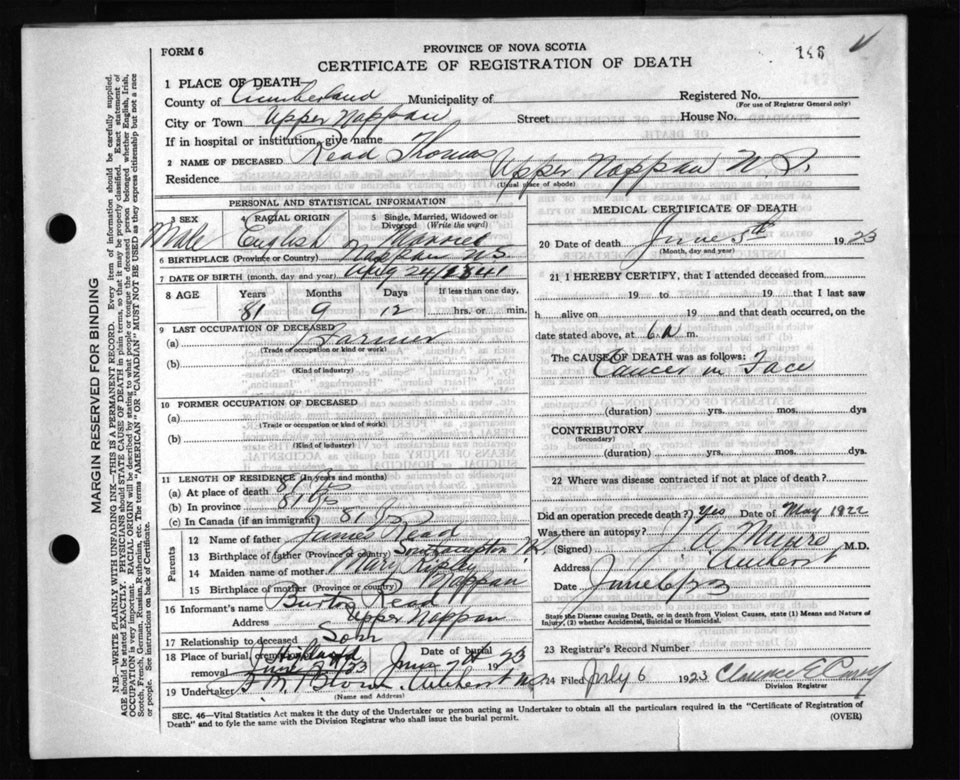 FORM 6
PROVINCE OF NOVA SCOTIA
146
CERTIFICATE OF REGISTRATION OF DEATH
1 PLACE OF DEATH—
County of Cumberland Municipality of
Registered No.
(For use of Registrar General only)
City or Town Upper Nappan Street House No.
If in hospital or institution, give name
2 NAME OF DECEASED Read Thomas
Residence Upper Nappan N.S.
(Usual place of abode)
PERSONAL AND STATISTICAL INFORMATION
3 SEX 4 RACIAL ORIGIN 5 Single, Married, Widowed or Divorced (Write the word)
Male English Married
6 BIRTHPLACE (Province or Country) Nappan N.S.
7 DATE OF BIRTH (month, day and year) Aug 24/1841
8 AGE Years Months Days If less than one day,
81 9 12 hrs. or min.
9 LAST OCCUPATION OF DECEASED
(a) Farmer
(Trade or occupation or kind or work)
(b)
(Kind of industry)
10 FORMER OCCUPATION OF DECEASED
(a)
(Trade or occupation or kind or work)
(b)
(Kind of industry)
11 LENGTH OF RESIDENCE (In years and months)
(a) At place of death 81 yrs
(b) In province 81 yrs
(c) In Canada (if an immigrant) 81 yrs
Parents
12 Name of father James Read
13 Birthplace of father (Province or country) Southampton
14 Maiden name of mother Mary Ripley
15 Birthplace of mother (Province or country) Nappan
16 Informant's name Burton Read
Address Upper Nappan
17 Relationship to deceased Son
18 Place of burial, cremation or removal Date of burial
June 7th 1923
19 Undertaker Amherst N.S.
(Name and Address)
MEDICAL CERTIFICATE OF DEATH
20 Date of death June 5th 1923
(Month, day and year)
21 I HEREBY CERTIFY, that I attended deceased from
19 to 19 that I last saw
h alive on 19 and that death occurred, on the
date stated above, at 6. m.
The CAUSE OF DEATH was as follows:
Cancer in Face
(duration) yrs. mos. dys
CONTRIBUTORY
(Secondary)
(duration) yrs. mos. dys.
22 Where was disease contracted if not at place of death?
Did an operation precede death? yes Date of May 1922
Was there an autopsy?
(Signed) J. A. Munro M.D.
Address Amherst
Date June 6/23
State the Disease causing Death, or in death from Violent Causes, state (1) Means and Nature of Injury, (2) whether Accidental, Suicidal or Homicidal.
23 Registrar's Record Number
24 Filed July 6 1923 Clarence E
Division Registrar
SEC. 46—Vital Statistics Act makes it the duty of the Undertaker or person acting as Undertaker to obtain all the particulars required in the "Certificate of Registration of
Death" and to fyle the same with the Division Registrar who shall issue the burial permit.
(OVER)
MARGIN RESERVED FOR BINDING
N.B.—WRITE PLAINLY WITH UNFADING INK—THIS IS A PERMANENT RECORD. Every item of information should be carefully supplied.
AGE should be stated EXACTLY. PHYSICIANS should STATE CAUSE OF DEATH in plain terms, so that it may be properly classified. Exact statement of
OCCUPATION is very important. RACIAL ORIGIN will be described by stating to what people or tongue the deceased person belonged whether English, Irish,
Scotch, French, German, Russian, Ruthenian, etc. The terms "AMERICAN" OR "CANADIAN" MUST NOT BE USED as they express citizenship but not a race
or people. See instructions on back of Certificate.